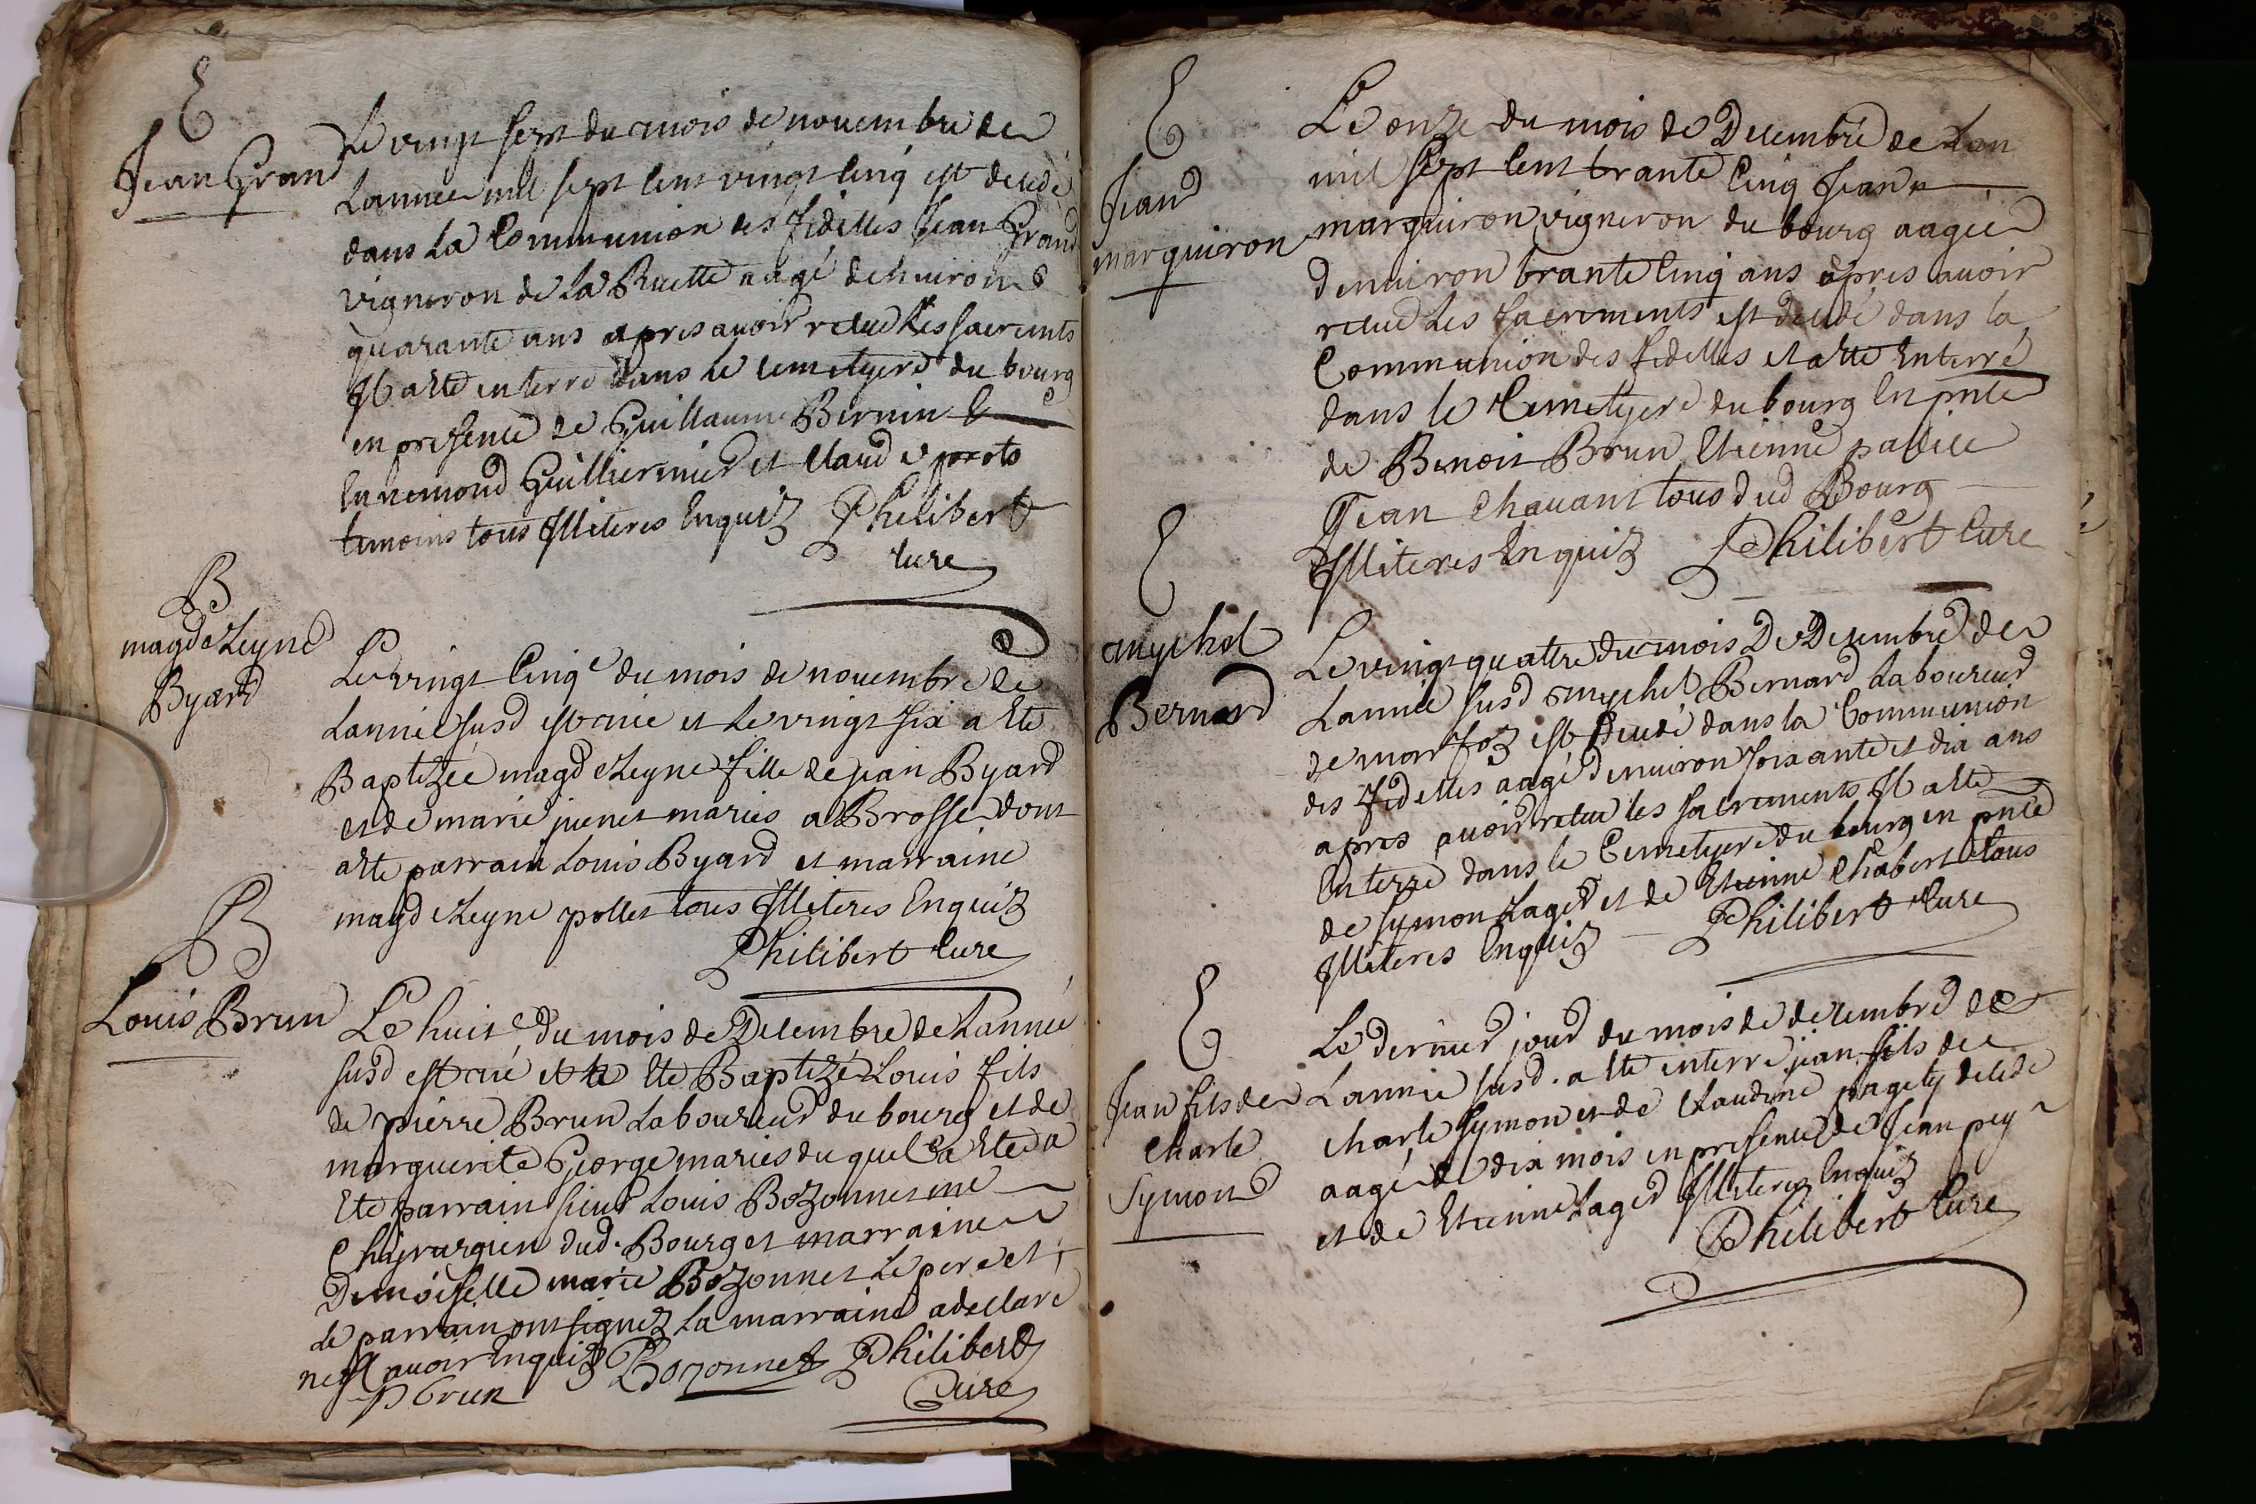 E
Jean Grand
Le vingt sept du mois de novembre de
Lannee mil sept cent vingt cinq est decede
dans La Communion des fidelles Jean Grand
vigneron de La Ruette aagé denuiron
quarante ans apres auoir receu Les sacremts
Il a ete enterré dans le cemetyere du bourg
en presence de Guillaume Bernin
Ennemond Guilliermier et Claude
temoins tous Illiteres Enquiz Philibert
Cure
B
magdeleyne
Byard
Le vingt Cinqe du mois de nouembre de
Lannee susd est née et Le vingt six a Ete
Baptizée magdeleyne fille de jean Byard
et de marie junet mariés a Brosse dont
a ete parrain Louis Byard et marraine
magdeleyne pollet tous Illiteres Enquiz
Philibert Cure
B
Louis Brun
Le huite du mois de Decembre de Lannee
susd est né et a Ete Baptizé Louis fils
de pierre Brun Laboureur du bourg et de
marguerite George mariés duquel a Ete a
Ete parrain sieur Louis Bozonnet me
Chyrurgien dud. Bourg et marraine
Demoiselle marie Bozonnet Le pere et
Le parrain ont signez La marraine a declaré
ne sçauoir Enquiz Bozonnet Philibert
P Brun Cure
E
Jean
marquiron
Le onze du mois de Decembre de Lan
mil sept Cent trante Cinq Jean
marquiron vigneron du bourg aagée
denuiron trante Cinq ans apres auoir
receu Les sacrements est decedé dans la
Communion des fidelles et a ete Enterré
dans le Cemetyere du bourg En pnce
de Benoit Brun Etienne pallice
Jean Chauant tous dud Bourg
Illiteres Enquiz Philibert Cure
E
mychel
Bernard
Le vingt quattre du mois De Decembre de
Lannée susd mychel Bernard Laboureur
de monfoz est Decedé dans la Communion
des fidelles aagé denuiron soixante et dix ans
apres auoir receu les sacrements Il a ete
Enterré dans le Cemetyere du bourg en pnce
de symon Lager et de Etienne Chabert tous
Illiteres Enquiz Philibert Cure
E
Jean fils de
Charle
Symond
Le dernier jour du mois de decembre de
Lannee susd. a ete enterré jean fils de
charle symon et de Claudine pagety decede
aagé de dix mois en presence de Jean pey
et de Etienne Lager Illiteres Enquiz
Philibert Cure